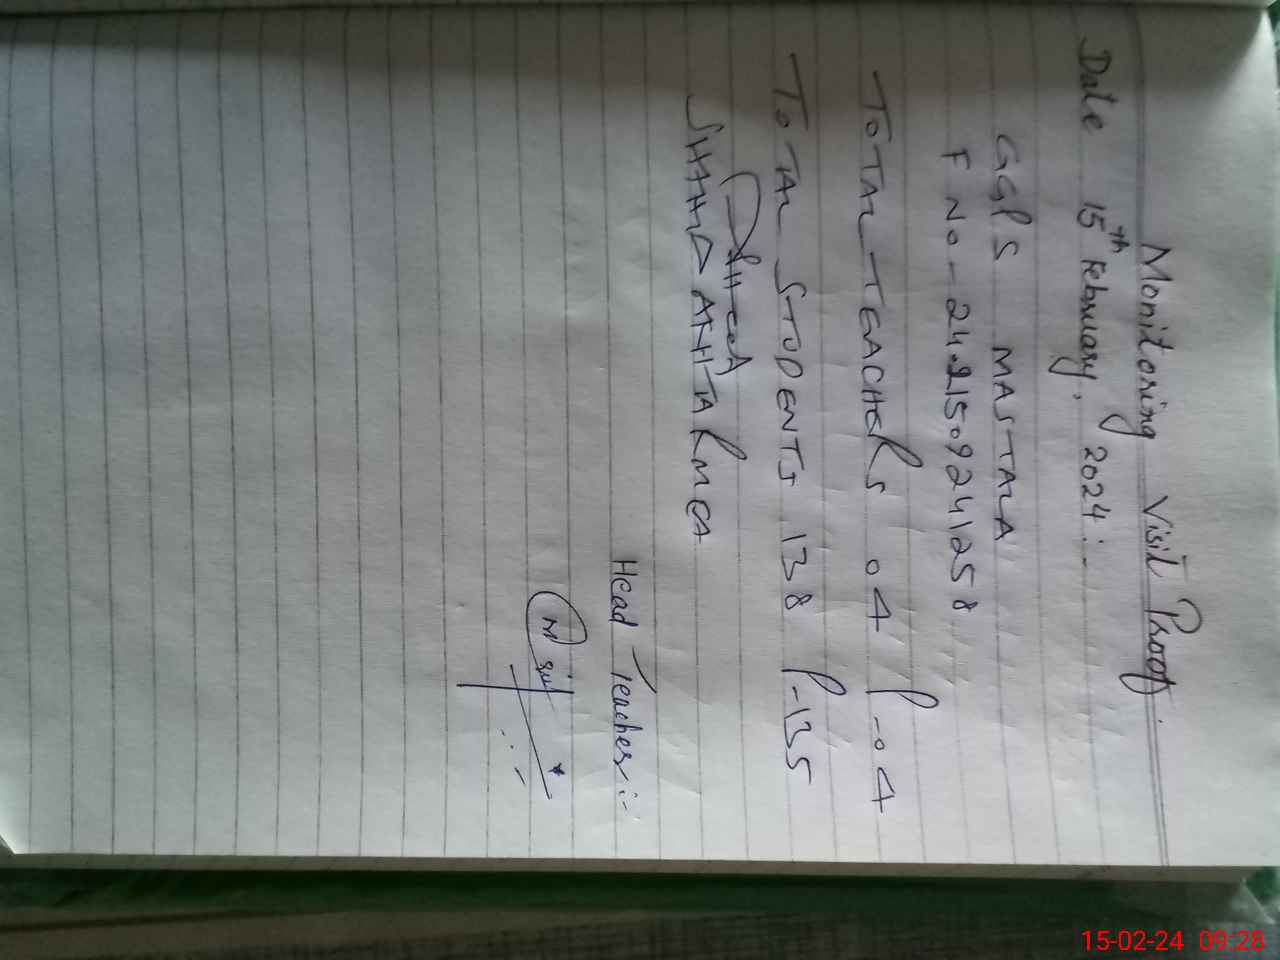 Monitoring Visit Proof.
Date 15th February, 2024:-
GGPS MASTALA
F No - 2421509241258
TOTAL TEACHERS 04 P-04
TOTAL STUDENTS 138 P-135
SHAHID AKHTAR MEA
Head Teacher:-
15-02-24 09:28